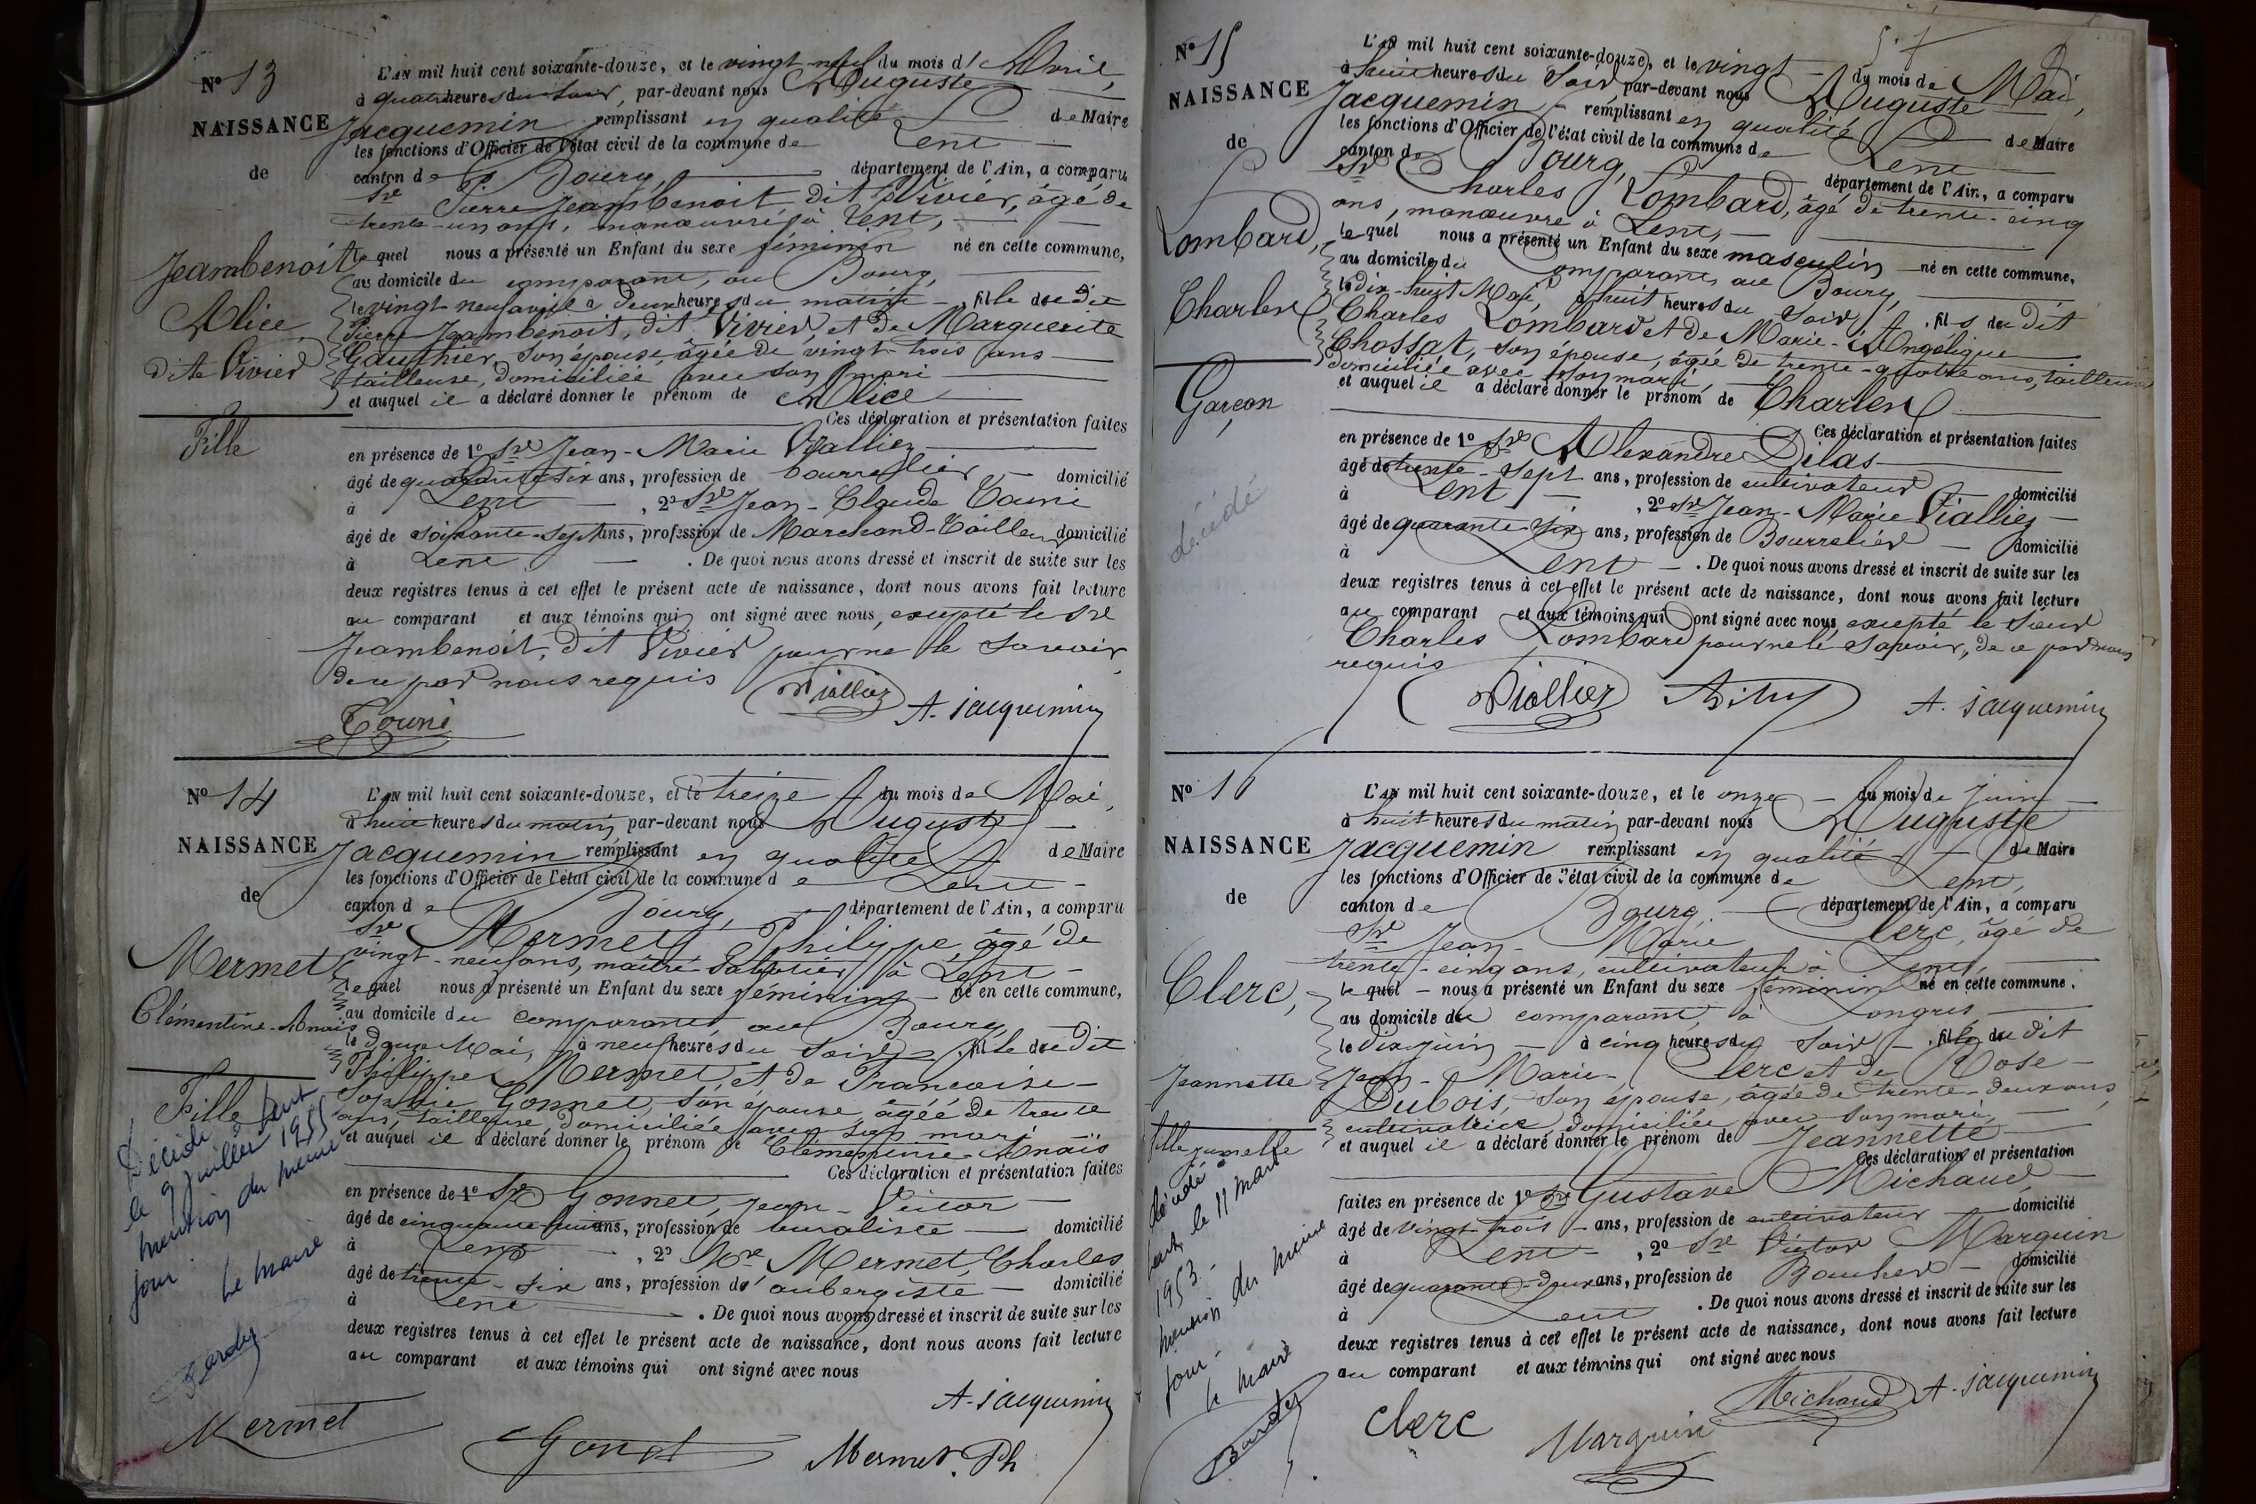 N° 13
NAISSANCE
de
Jeambenoit
Alice
dite Vivier
Fille
L'AN mil huit cent soixante-douze, et le vingt-neuf du mois d'Avril,
à quatre heures du soir, par-devant nous Auguste
Jacquemin remplissant en qualité de Maire
les fonctions d'Officier de l'état civil de la commune de Lent
canton de Bourg, département de l'Ain, a comparu
Sr Pierre Jeambenoit dit Vivier, âgé de
trente-un ans, manœuvre à Lent,
lequel nous a présenté un Enfant du sexe féminin né en cette commune,
au domicile du comparant, au Bourg,
le vingt-neuf avril à deux heures du matin, fille du dit
Pierre Jeambenoit, dit Vivier et de Marguerite
Gauthier, son épouse, âgée de vingt-trois ans
tailleuse, domiciliée avec son mari
et auquel il a déclaré donner le prénom de Alice
Ces déclaration et présentation faites
en présence de 1° Sr Jean-Marie Viallier
âgé de quarante-six ans, profession de bourrelier domicilié
à Lent, 2° Sr Jean-Claude Touni
âgé de soixante-sept ans, profession de Marchand-Tailleur domicilié
à Lent. De quoi nous avons dressé et inscrit de suite sur les
deux registres tenus à cet effet le présent acte de naissance, dont nous avons fait lecture
au comparant et aux témoins qui ont signé avec nous, excepté le Sr
Jeambenoit, dit Vivier pour ne le savoir,
de ce par nous requis
Viallier
A. Jacquemin
Touni
N° 14
NAISSANCE
de
Mermet
Clémentine-Anaïs
Fille
Décédée à Lent
le 9 juillet 1955
mention du même
jour
Le Maire
L'AN mil huit cent soixante-douze, et le treize du mois de Mai,
à huit heures du matin par-devant nous Auguste
Jacquemin remplissant en qualité de Maire
les fonctions d'Officier de l'état civil de la commune de Lent
canton de Bourg, département de l'Ain, a comparu
Sr Mermet Philippe, âgé de
vingt-neuf ans, maître sabotier à Lent
lequel nous a présenté un Enfant du sexe féminin né en cette commune,
au domicile du comparant, au Bourg,
le douze Mai, à neuf heures du soir, fille du dit
Philippe Mermet, et de Françoise-
Sophie Gonnet, son épouse, âgée de trente
ans, tailleuse, domiciliée avec son mari
et auquel il a déclaré donner le prénom de Clémentine-Anaïs
Ces déclaration et présentation faites
en présence de 1° Sr Gonnet, Jean-Victor
âgé de cinquante-huit ans, profession de buraliste domicilié
à Lent, 2° Mr Mermet, Charles
âgé de trente-six ans, profession d'aubergiste domicilié
à Lent. De quoi nous avons dressé et inscrit de suite sur les
deux registres tenus à cet effet le présent acte de naissance, dont nous avons fait lecture
au comparant et aux témoins qui ont signé avec nous
A. Jacquemin
Mermet
Gonnet
Mermet. Ph
N° 15
NAISSANCE
de
Lombard,
Charles
Garçon
décédé
L'AN mil huit cent soixante-douze, et le vingt du mois de Mai,
à huit heures du soir, par-devant nous Auguste
Jacquemin remplissant en qualité de Maire
les fonctions d'Officier de l'état civil de la commune de Lent
canton de Bourg, département de l'Ain, a comparu
Sr Charles Lombard, âgé de trente-cinq
ans, manœuvre à Lent,
lequel nous a présenté un Enfant du sexe masculin né en cette commune,
au domicile du comparant, au Bourg,
le dix-huit Mai, à huit heures du soir, fils du dit
Charles Lombard et de Marie-Angélique
Chossat, son épouse, âgée de trente-quatre ans, tailleuse
domiciliée avec son mari,
et auquel il a déclaré donner le prénom de Charles
Ces déclaration et présentation faites
en présence de 1° Sr Alexandre Delas
âgé de trente-sept ans, profession de cultivateur domicilié
à Lent, 2° Sr Jean-Marie Viallier
âgé de quarante-six ans, profession de Bourrelier domicilié
à Lent. De quoi nous avons dressé et inscrit de suite sur les
deux registres tenus à cet effet le présent acte de naissance, dont nous avons fait lecture
au comparant et aux témoins qui ont signé avec nous, excepté le sieur
Charles Lombard pour ne le savoir, de ce par nous
requis
Viallier
A. Jacquemin
N° 16
NAISSANCE
de
Clerc,
Jeannette
fille jumelle
décédée à
Lent, le 11 mars
1953.
mention du même
jour.
le maire
L'AN mil huit cent soixante-douze, et le onze du mois de juin
à huit heures du matin par-devant nous Auguste
Jacquemin remplissant en qualité de Maire
les fonctions d'Officier de l'état civil de la commune de Lent,
canton de Bourg, département de l'Ain, a comparu
Sr Jean-Marie Clerc, âgé de
trente-cinq ans, cultivateur à Lent,
lequel nous a présenté un Enfant du sexe féminin né en cette commune,
au domicile du comparant, à Longris,
le dix juin à cinq heures du soir, fille du dit
Jean-Marie Clerc et de Rose
Dubois, son épouse, âgée de trente-deux ans,
cultivatrice, domiciliée avec son mari,
et auquel il a déclaré donner le prénom de Jeannette
Ces déclaration et présentation
faites en présence de 1° Sr Gustave Michaud
âgé de vingt-trois ans, profession de cultivateur domicilié
à Lent, 2° Sr Victor Marguin
âgé de quarante-deux ans, profession de Boucher domicilié
à Lent. De quoi nous avons dressé et inscrit de suite sur les
deux registres tenus à cet effet le présent acte de naissance, dont nous avons fait lecture
au comparant et aux témoins qui ont signé avec nous
Michaud A. Jacquemin
Clerc
Marguin